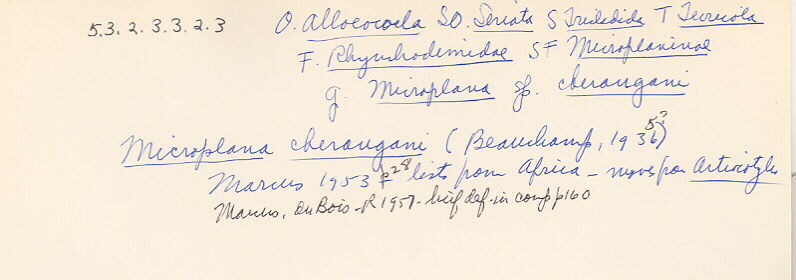 5.3.2.3.3.2.3
O. Alloeocoela SO. Seriata S Tricladida T Terricola
F. Rhynchodemidae SF Microplaninae
g. Microplana sp. cherangani
Microplana cherangani (Beauchamp, 1936) 5?
Marcus 1953 F28 lists from Africa - moves from Artiocotylus
Marcus, du Bois-R 1957 - brief def. in comp p160